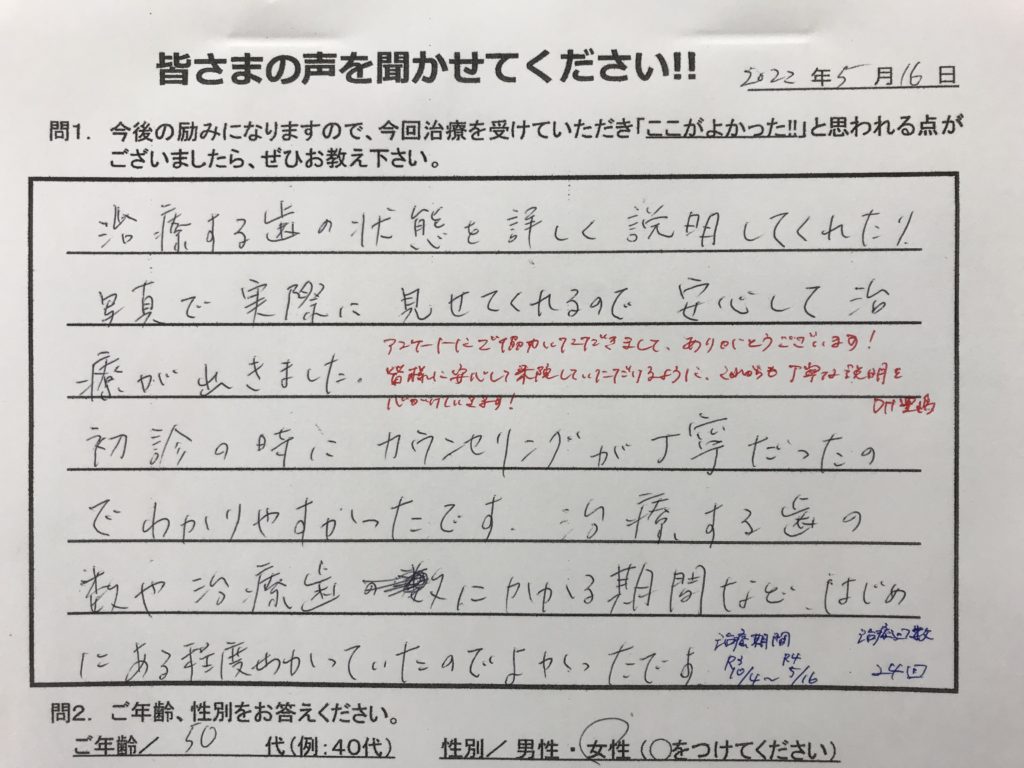 皆さまの声を聞かせてください!!
2022 年 5 月 16 日
問1. 今後の励みになりますので、今回治療を受けていただき「ここがよかった!!」と思われる点が
ございましたら、ぜひお教え下さい。
治療する歯の状態を詳しく説明してくれたり、
写真で実際に見せてくれるので安心して治
療が出きました。
アンケートにご協力いただきまして、ありがとうございます!
皆様に安心して来院していただけるように、これからも丁寧な説明を
心がけていきます!
DH
初診の時にカウンセリングが丁寧だったの
でわかりやすかったです。治療する歯の
数や治療歯にかかる期間など、はじめ
にある程度わかっていたのでよかったです
治療期間
R3 10/4〜R4 5/16
治療回数
24回
問2. ご年齢、性別をお答えください。
ご年齢/ 50 代(例:40代) 性別/ 男性・女性 (○をつけてください)